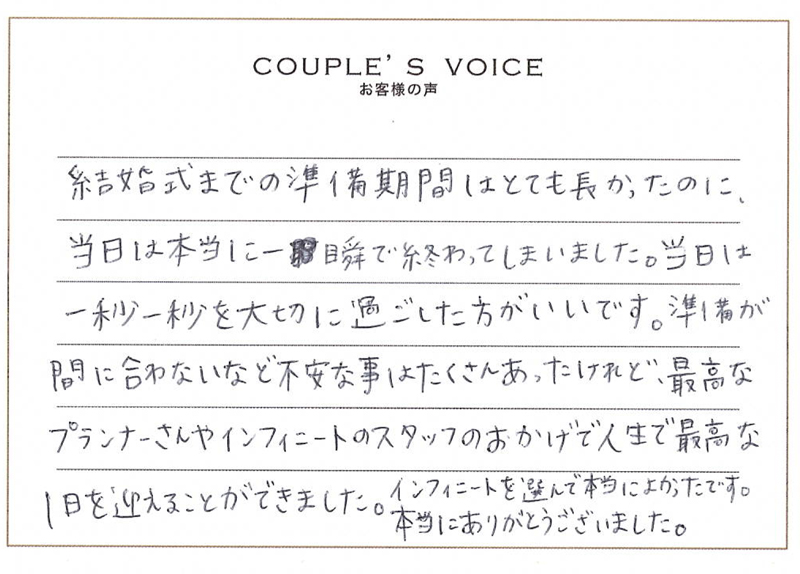 COUPLE'S VOICE
お客様の声
結婚式までの準備期間はとても長かったのに、
当日は本当に一瞬で終わってしまいました。当日は
一秒一秒を大切に過ごした方がいいです。準備が
間に合わないなど不安な事はたくさんあったけれど、最高な
プランナーさんやインフィニートのスタッフのおかげで人生で最高な
1日を迎えることができました。インフィニートを選んで本当によかったです。
本当にありがとうございました。